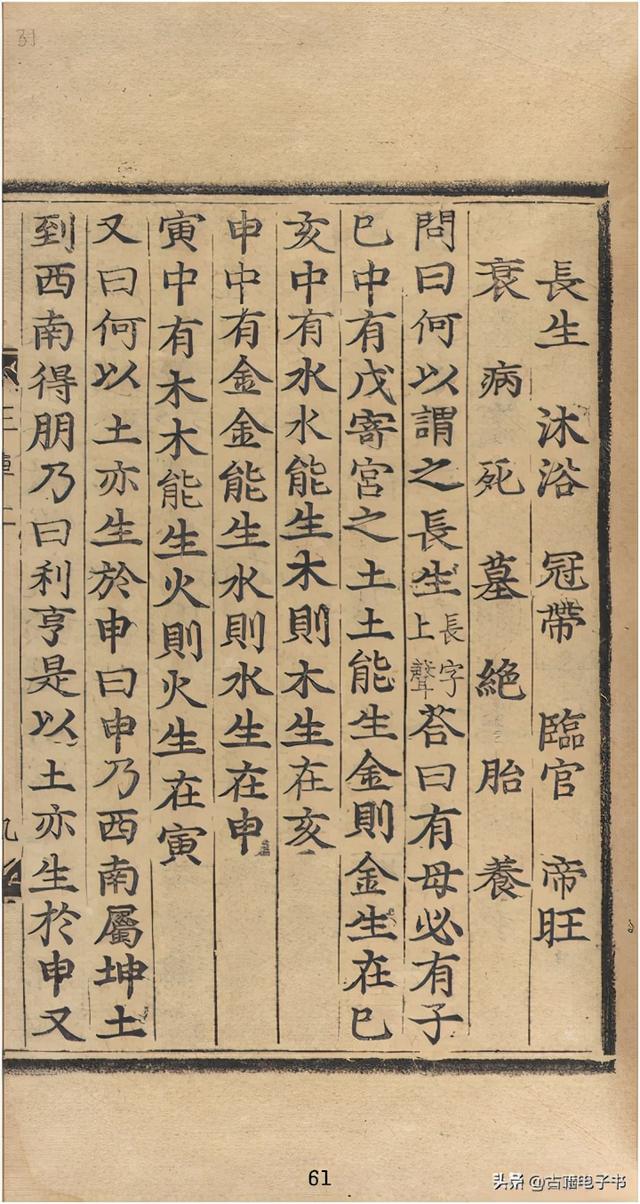 長生 沐浴 冠帶 臨官 帝旺
衰 病 死 墓 絕 胎 養
問曰何以謂之長生長字上聲荅曰有母必有子
巳中有戊寄宮之土土能生金則金生在巳
亥中有水水能生木則木生在亥
申中有金金能生水則水生在申
寅中有木木能生火則火生在寅
又曰何以土亦生於申曰申乃西南屬坤土
到西南得朋乃曰利亨是以土亦生於申又
31
61
头条@古籍电子书